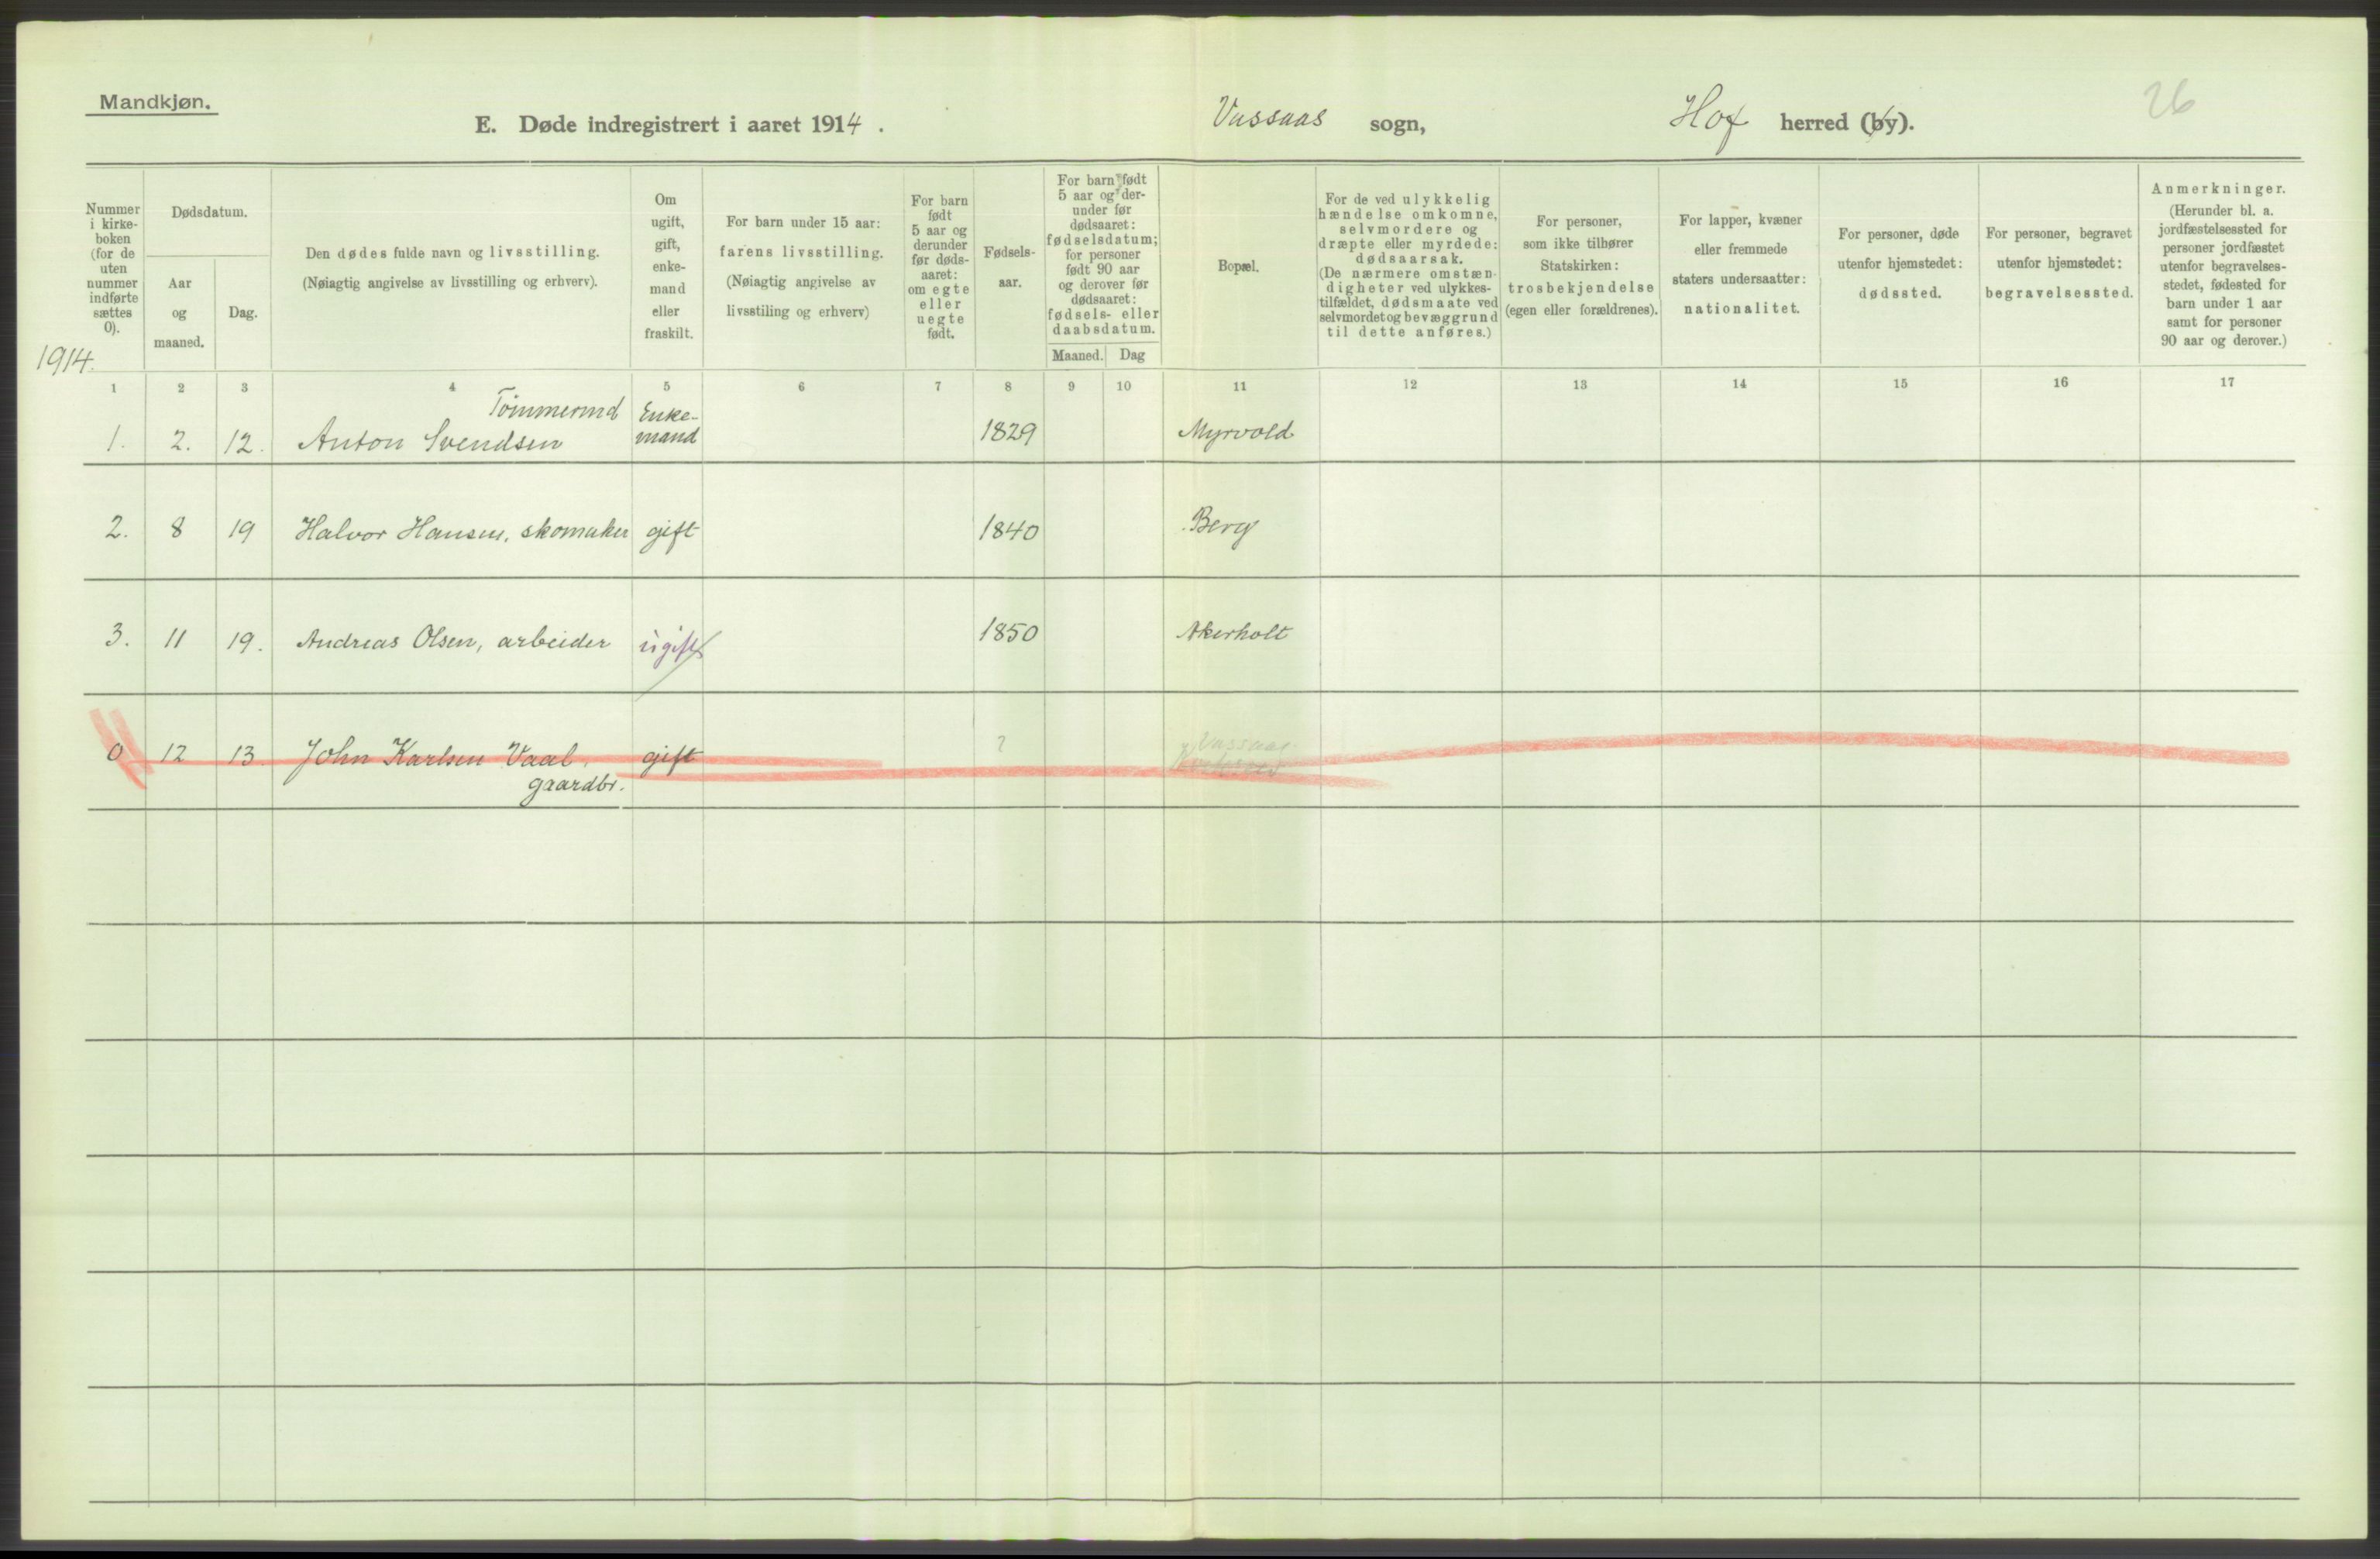 Mandkjøn.
E. Døde indregistrert i aaret 1914.
Vassaas sogn,
Hof herred (by).
26
Nummer i kirke-boken (for de uten nummer indførte sættes 0).
Dødsdatum.
Aar og maaned.
Dag.
Den dødes fulde navn og livsstilling.
(Nøiagtig angivelse av livsstilling og erhverv).
Om ugift, gift, enke-mand eller fraskilt.
For barn under 15 aar:
farens livsstilling.
(Nøiagtig angivelse av
livsstiling og erhverv)
For barn født 5 aar og derunder før døds-aaret: om egte eller uegte født.
Fødsels-
aar.
For barn født 5 aar og der-under før dødsaaret: fødselsdatum; for personer født 90 aar og derover før dødsaaret: fødsels- eller daabsdatum.
Maaned. Dag
Bopæl.
For de ved ulykkelig hændelse omkomne, selvmordere og dræpte eller myrdede: dødsaarsak. (De nærmere omstæn-digheter ved ulykkes-tilfældet, dødsmaate ved selvmordet og bevæggrund til dette anføres.)
For personer, som ikke tilhører Statskirken: trosbekjendelse (egen eller forældrenes).
For lapper, kvæner eller fremmede staters undersaatter: nationalitet.
For personer, døde utenfor hjemstedet: dødssted.
For personer, begravet utenfor hjemstedet: begravelsessted.
Anmerkninger.
(Herunder bl. a. jordfæstelsessted for personer jordfæstet utenfor begravelses-stedet, fødested for barn under 1 aar samt for personer 90 aar og derover.)
1914.
1 2 3 4 5 6 7 8 9 10 11 12 13 14 15 16 17
Tømmermd Enke-
1. 2. 12. Anton Svendsen mand 1829 Myrvold
2. 8 19 Halvor Hansen, skomaker gift 1840 Berg
3. 11 19. Andreas Olsen, arbeider ugift 1850 Akerholt
0 12 13. John Karlsen Vaal, gift ? Vassaas
gaardbr.